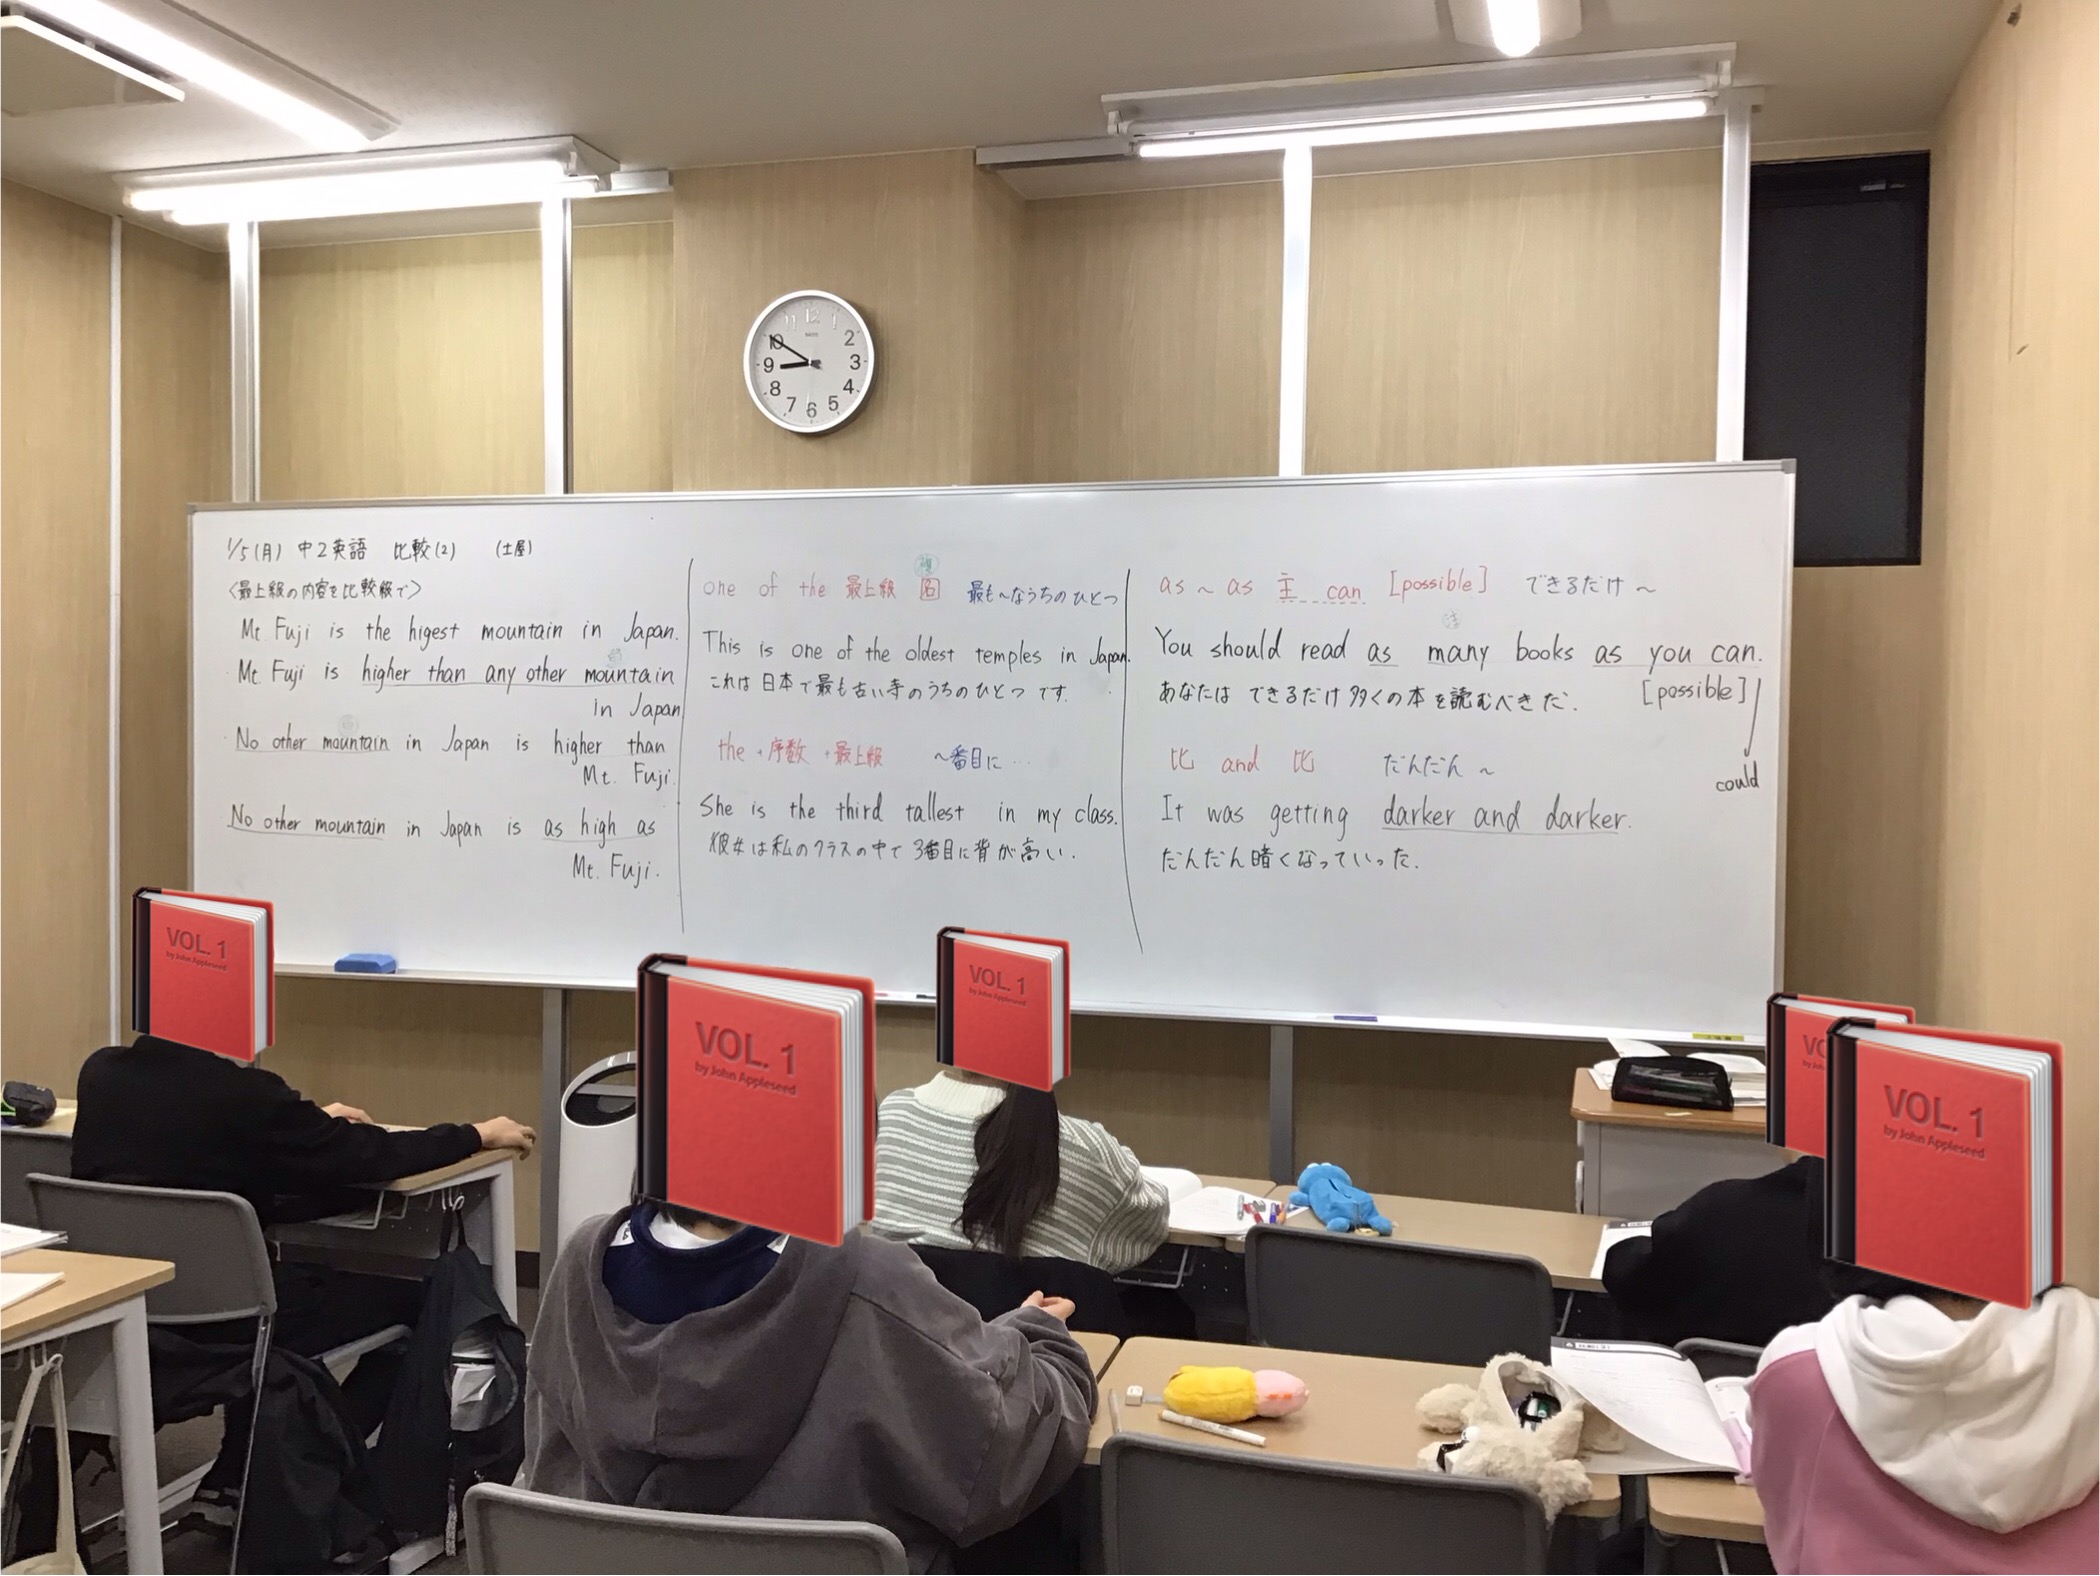 1/5(月) 中2英語 比較(2) (土屋)
〈最上級の内容を比較級で〉
Mt Fuji is the higest mountain in Japan.
Mt Fuji is higher than any other mountain
in Japan
No other mountain in Japan is higher than
Mt. Fuji.
No other mountain in Japan is as high as
Mt. Fuji.
one of the 最上級 名 最も〜なうちのひとつ
This is one of the oldest temples in Japan.
これは日本で最も古い寺のうちのひとつです.
the + 序数 + 最上級 〜番目に…
She is the third tallest in my class.
彼女は私のクラスの中で3番目に背が高い.
as 〜 as 主 can [possible] できるだけ〜
You should read as many books as you can.
[possible]
あなたはできるだけ多くの本を読むべきだ.
could
比 and 比 だんだん〜
It was getting darker and darker.
だんだん暗くなっていった.
11 12 1
10 2
9 3
8 4
7 6 5
VOL. 1
by John Appleseed
VOL. 1
by John Appleseed
VOL. 1
by John Appleseed
VOL. 1
by John Appleseed